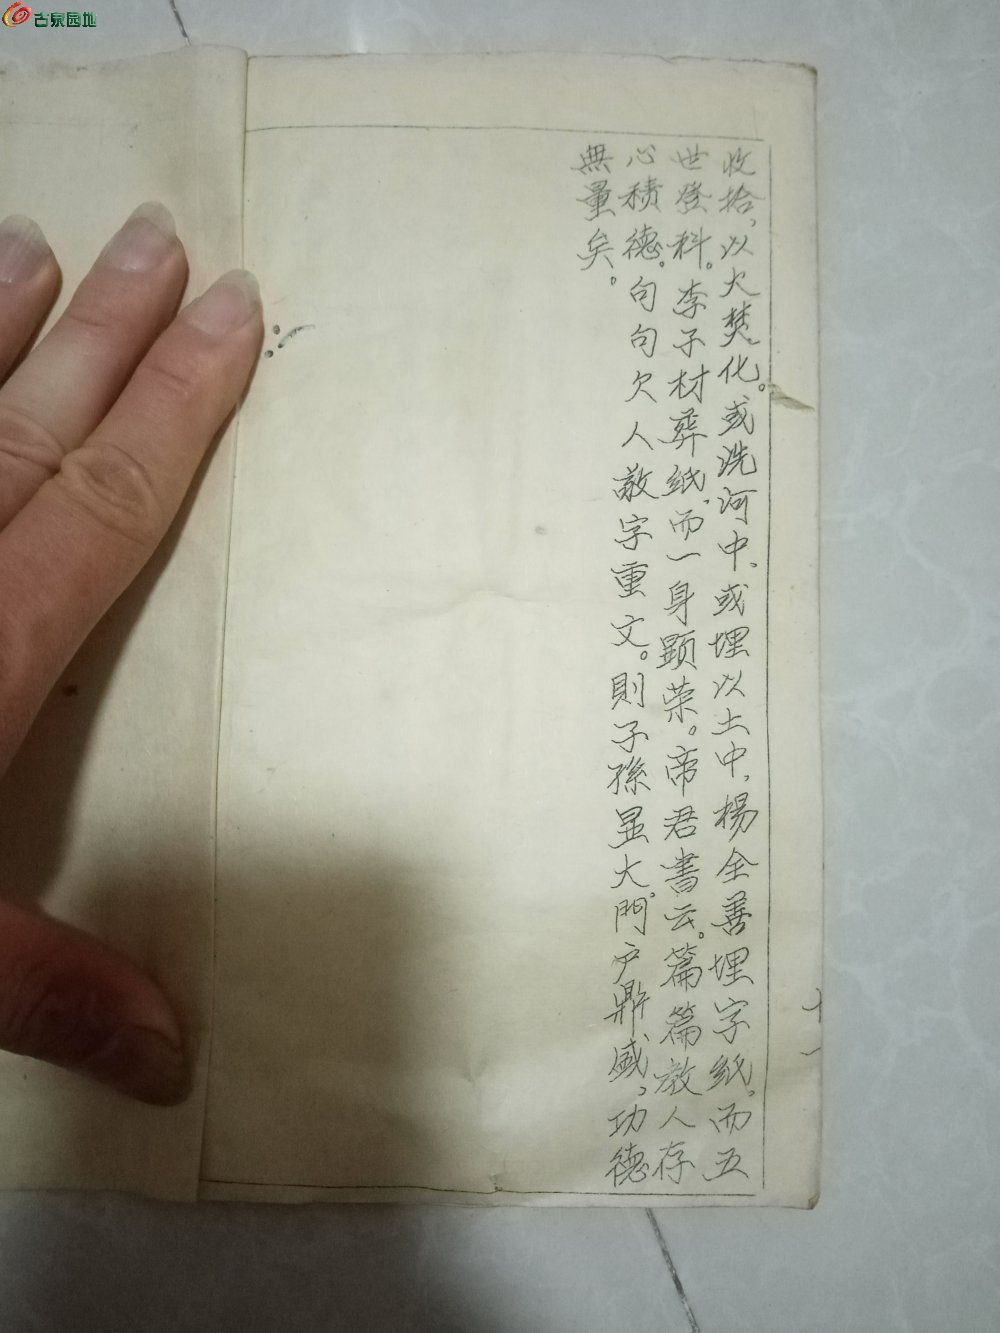 古泉园地
收拾，以火焚化。或洗河中、或埋以土中，楊全善埋字紙，而五
世登科。李子材葬紙，而一身顕荣。帝君書云。篇篇教人存
心積德。句句欠人敬字重文。則子孫显大，門户鼎盛，功德
無量矣。
十一